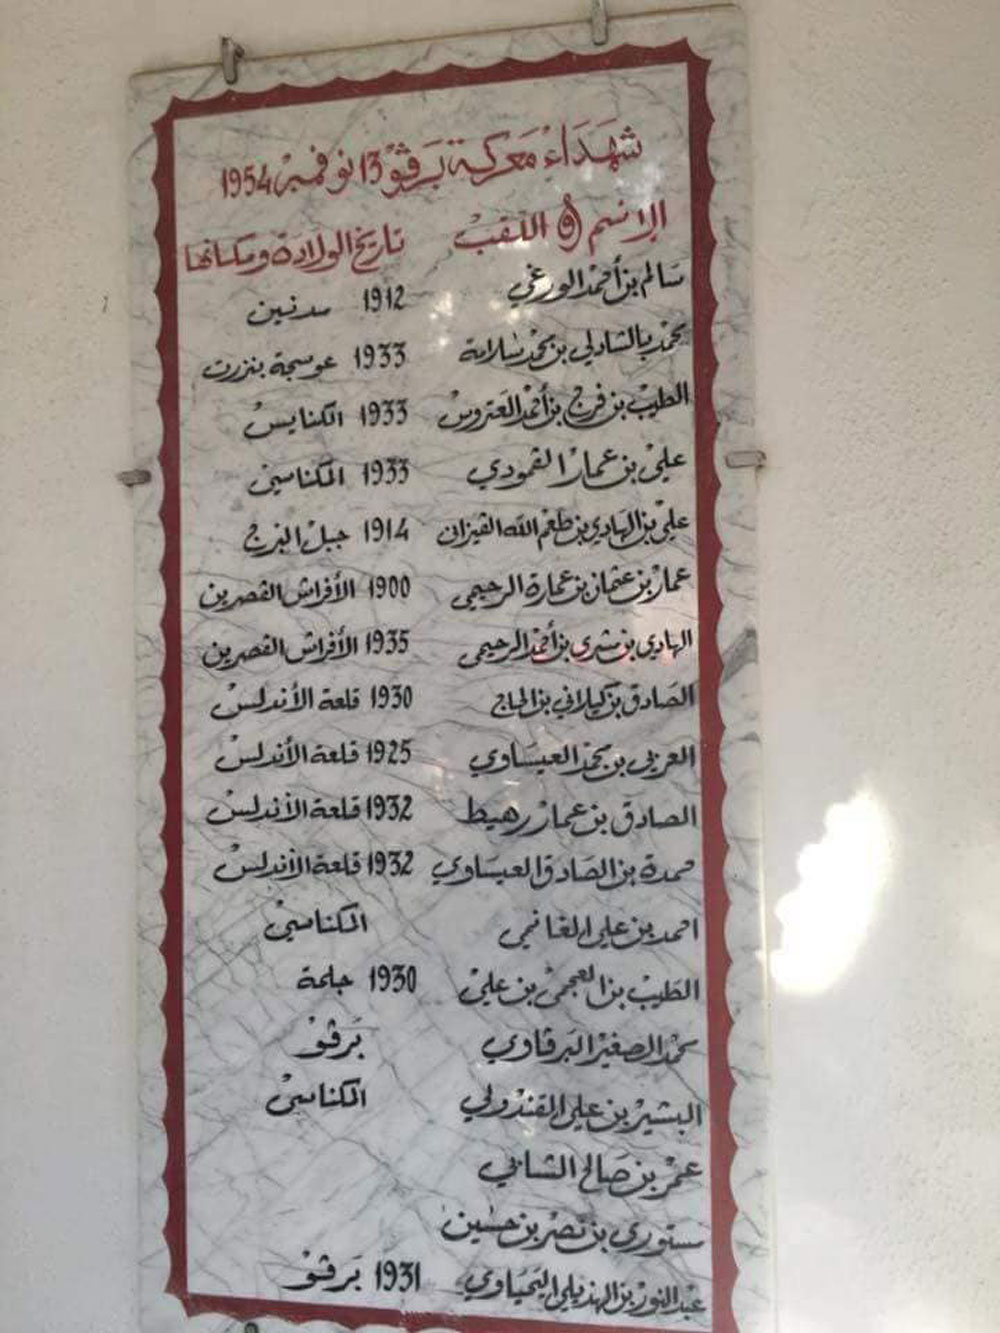 شهَدَاءْ مَعركة بَرڤوْ 13 نوفمبرْ 1954
الإسم و اللقبْ تاريخ الولادة ومكانها
سَالم بن أحمد الورغي 1912 مدنين
محمد بالشاذلي بن محمد سلامة 1933 عوسجة بنزرت
الطيب بن فرج بن أحمد العتروس 1933 الكنايسْ
علي بن عمار القمودي 1933 المكناسي
علي بن الهادي بن طعم الله القيزاني 1914 جبل البرج
عمار بن عثمان بن عمارة الرحيمي 1900 الأفراش القصرين
الهادي بن بشري بن أحمد الرحيمي 1935 الأفراش القصرين
الصَادق بن كيلاني بن الحاج 1930 قلعة الأندلسْ
العربي بن محمد العيسَاوي 1925 قلعة الأندلسْ
الصادق بن عمارْ رهيط 1932 قلعة الأندلسْ
حمدة بن الصَادق العيسَاوي 1932 قلعة الأندلسْ
احمد بن علي الغانمي المكناسيْ
الطيبْ بن العجمي بن عليْ 1930 جلمة
محمد الصغير البرڤاوي بَرڤوْ
البشيرْ بن علي القندولي المكناسيْ
عمرْ بن صَالح الشابي
ستوري بن نصر بن حسَين
عبد النور بن الهذيلي اليَحيَاوي 1931 بَرڤوْ